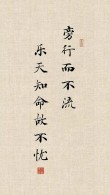 旁行而不流
乐天知命故不忧